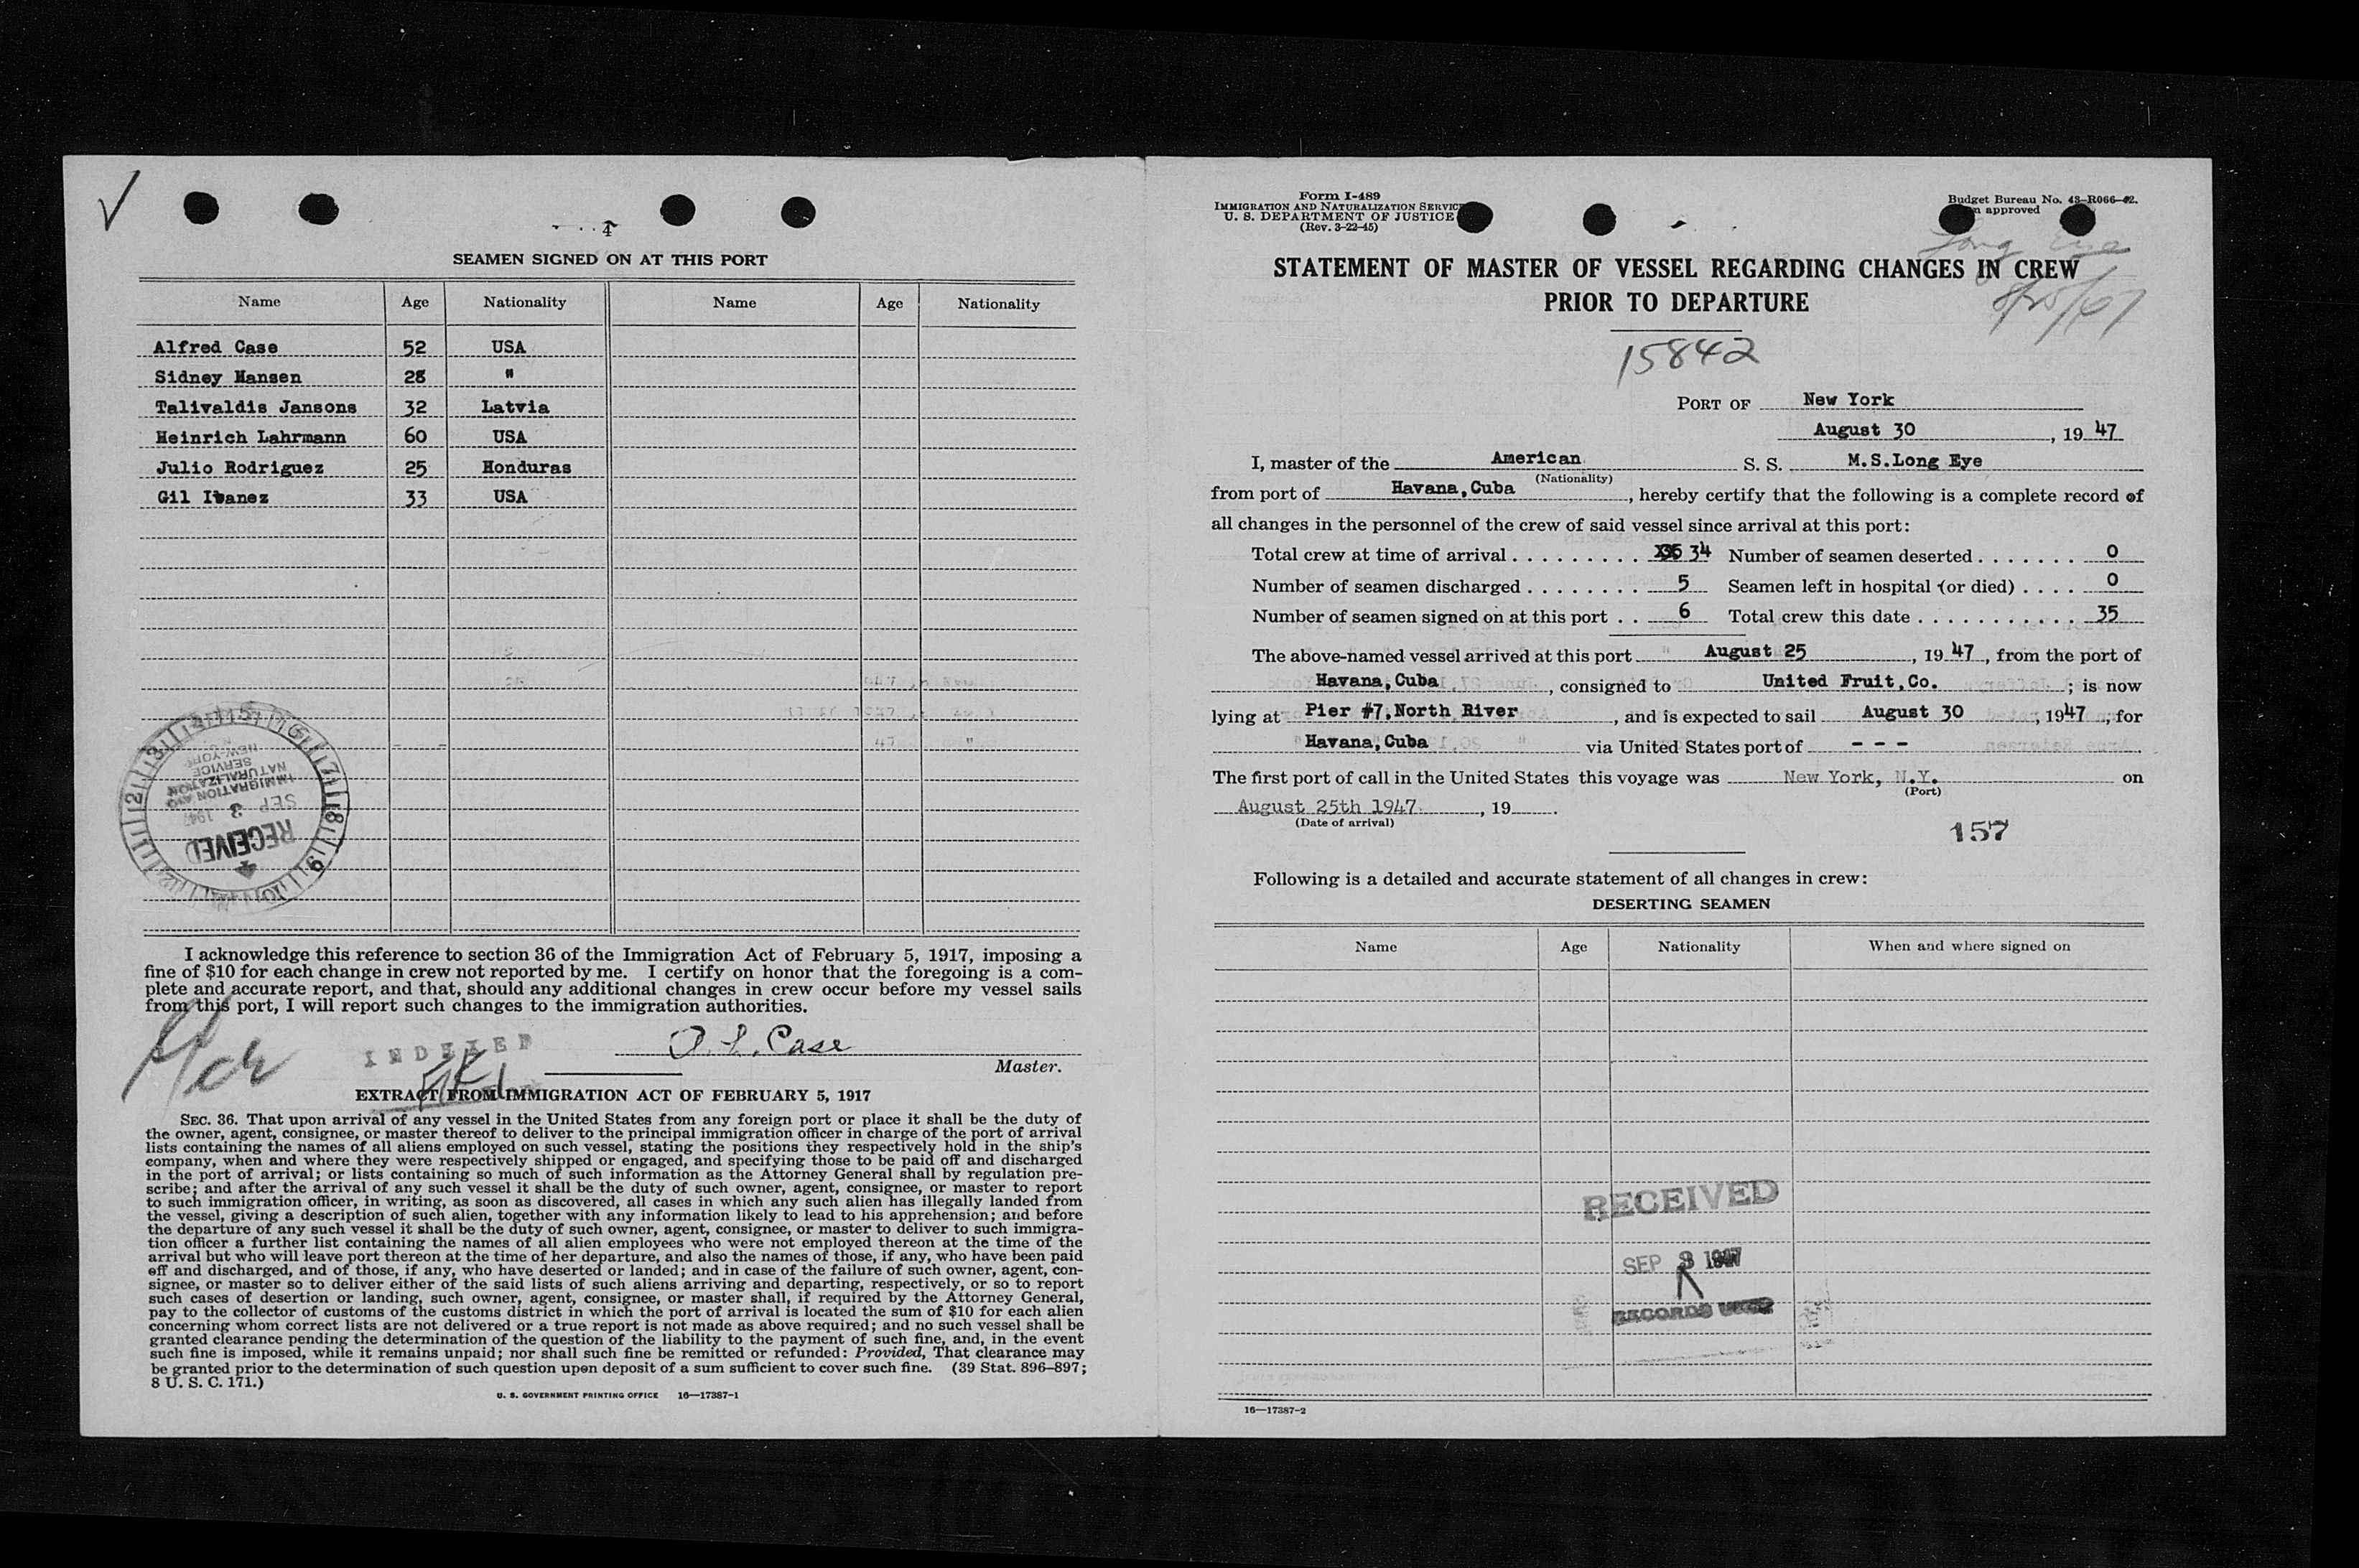 4
SEAMEN SIGNED ON AT THIS PORT
Name Age Nationality Name Age Nationality
Alfred Case 52 USA
Sidney Hansen 28 "
Talivaldis Jansons 32 Latvia
Heinrich Lahrmann 60 USA
Julio Rodriguez 25 Honduras
Gil Ibanez 33 USA
IMMIGRATION AND
NATURALIZATION
SERVICE
NEW YORK
SEP 3 1947
RECEIVED
I acknowledge this reference to section 36 of the Immigration Act of February 5, 1917, imposing a
fine of $10 for each change in crew not reported by me. I certify on honor that the foregoing is a com-
plete and accurate report, and that, should any additional changes in crew occur before my vessel sails
from this port, I will report such changes to the immigration authorities.
INDEXED
A. L. Case
Master.
EXTRACT FROM IMMIGRATION ACT OF FEBRUARY 5, 1917
SEC. 36. That upon arrival of any vessel in the United States from any foreign port or place it shall be the duty of
the owner, agent, consignee, or master thereof to deliver to the principal immigration officer in charge of the port of arrival
lists containing the names of all aliens employed on such vessel, stating the positions they respectively hold in the ship's
company, when and where they were respectively shipped or engaged, and specifying those to be paid off and discharged
in the port of arrival; or lists containing so much of such information as the Attorney General shall by regulation pre-
scribe; and after the arrival of any such vessel it shall be the duty of such owner, agent, consignee, or master to report
to such immigration officer, in writing, as soon as discovered, all cases in which any such alien has illegally landed from
the vessel, giving a description of such alien, together with any information likely to lead to his apprehension; and before
the departure of any such vessel it shall be the duty of such owner, agent, consignee, or master to deliver to such immigra-
tion officer a further list containing the names of all alien employees who were not employed thereon at the time of the
arrival but who will leave port thereon at the time of her departure, and also the names of those, if any, who have been paid
off and discharged, and of those, if any, who have deserted or landed; and in case of the failure of such owner, agent, con-
signee, or master so to deliver either of the said lists of such aliens arriving and departing, respectively, or so to report
such cases of desertion or landing, such owner, agent, consignee, or master shall, if required by the Attorney General,
pay to the collector of customs of the customs district in which the port of arrival is located the sum of $10 for each alien
concerning whom correct lists are not delivered or a true report is not made as above required; and no such vessel shall be
granted clearance pending the determination of the question of the liability to the payment of such fine, and, in the event
such fine is imposed, while it remains unpaid; nor shall such fine be remitted or refunded: Provided, That clearance may
be granted prior to the determination of such question upon deposit of a sum sufficient to cover such fine. (39 Stat. 896–897;
8 U. S. C. 171.)
U. S. GOVERNMENT PRINTING OFFICE 16—17387-1
Form I-489
IMMIGRATION AND NATURALIZATION SERVICE
U. S. DEPARTMENT OF JUSTICE
(Rev. 3-22-45)
Budget Bureau No. 43–R066–42.
approved
Long Eye
STATEMENT OF MASTER OF VESSEL REGARDING CHANGES IN CREW
PRIOR TO DEPARTURE
15842
PORT OF New York
August 30, 19 47
I, master of the American S. S. M.S.Long Eye
(Nationality)
from port of Havana,Cuba, hereby certify that the following is a complete record of
all changes in the personnel of the crew of said vessel since arrival at this port:
Total crew at time of arrival . . . . . . . . . . 34 Number of seamen deserted . . . . . . . 0
Number of seamen discharged . . . . . . . . 5 Seamen left in hospital (or died) . . . . 0
Number of seamen signed on at this port . . 6 Total crew this date . . . . . . . . . . . 35
The above-named vessel arrived at this port August 25, 19 47, from the port of
Havana,Cuba, consigned to United Fruit,Co.; is now
lying at Pier #7,North River, and is expected to sail August 30, 1947, for
Havana,Cuba via United States port of - - -
The first port of call in the United States this voyage was New York, N.Y. on
(Port)
August 25th 1947, 19 .
(Date of arrival)
157
Following is a detailed and accurate statement of all changes in crew:
DESERTING SEAMEN
Name Age Nationality When and where signed on
RECEIVED
SEP 3 1947
RECORDS
16—17387-2